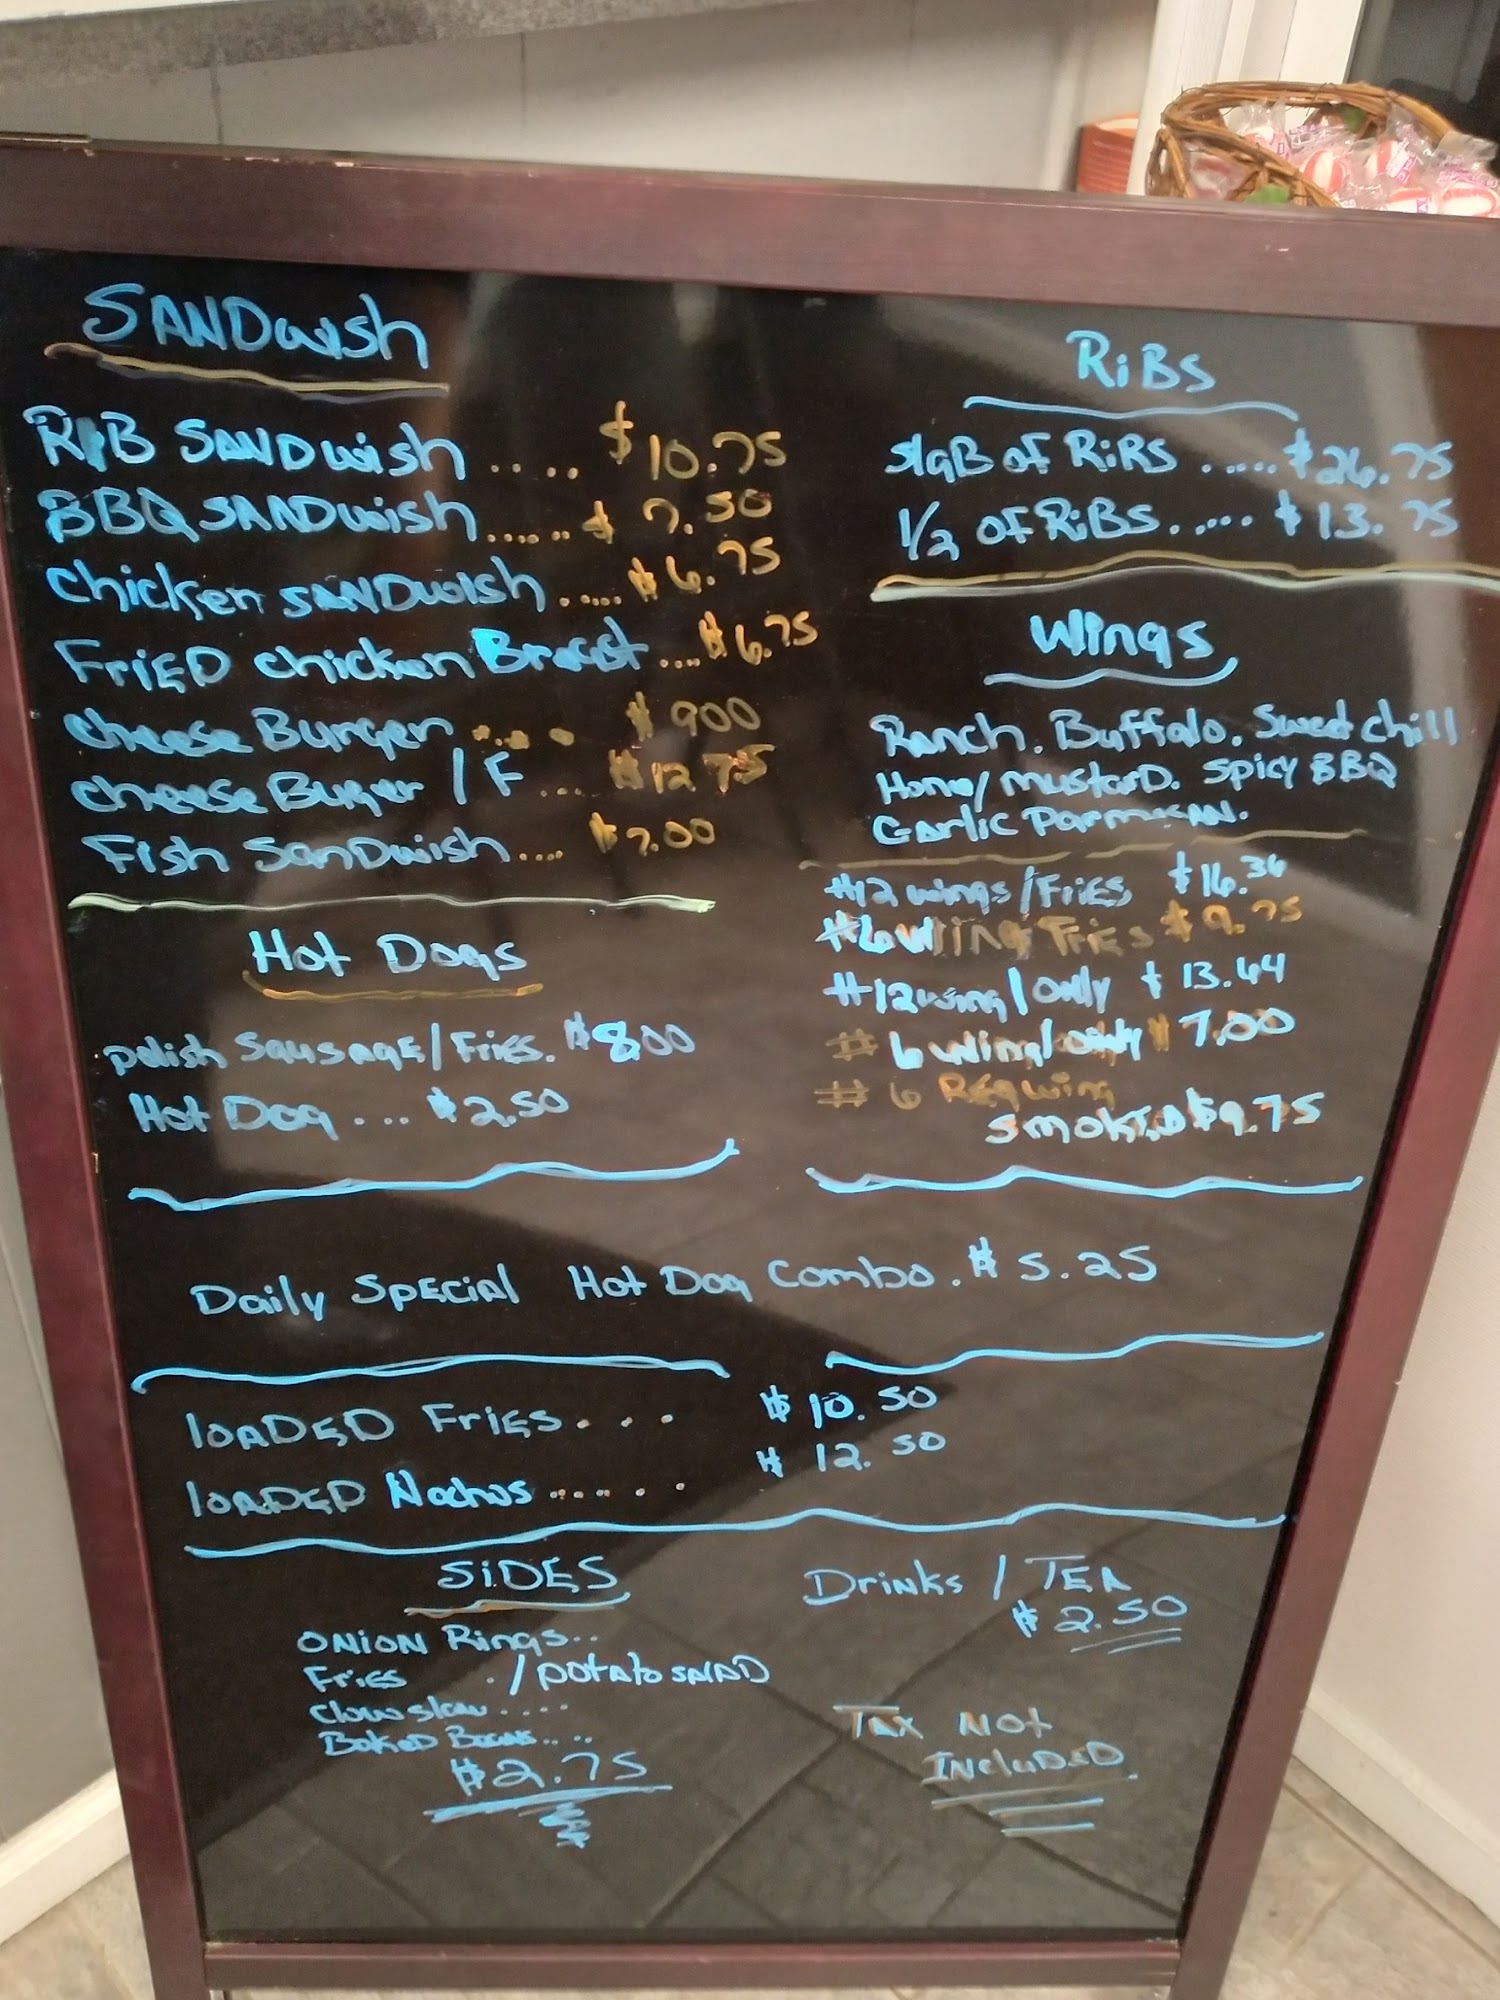 SANDwish
RIB SANDwish ..... $10.75
BBQ SANDwish...... $ 7.50
Chicken SANDwish ..... $6.75
FriED chicken Breast .... $6.75
cheese Burger ..... $ 900
cheese Burger / F ... $12 75
Fish SanDwish.... $7.00
Hot Dogs
polish SausagE/Fries. $8.00
Hot Dog ... $2.50
RiBS
slaB of RiBS ..... $26.75
1/2 OF RiBS..... $13.75
Wings
Ranch. Buffalo. Sweet chill
Honey MustarD. Spicy BBQ
Garlic Parmesan.
#12 wings/FriES $16.36
#6 Wing Fries $9.75
#12 wing/only $13.64
# 6 Wing/only $7.00
# 6 REg Wing
smokED $9.75
Daily SpEcial Hot Dog Combo. $ 5.25
loADED FriES . . . $10.50
loADED Nachos ..... . $12.50
SiDES
ONiON Rings..
Fries ./potato sAlAD
Clowslaw ....
BakeD Beans....
$2.75
Drinks / TEA
$2.50
TAx Not
INcluDeD